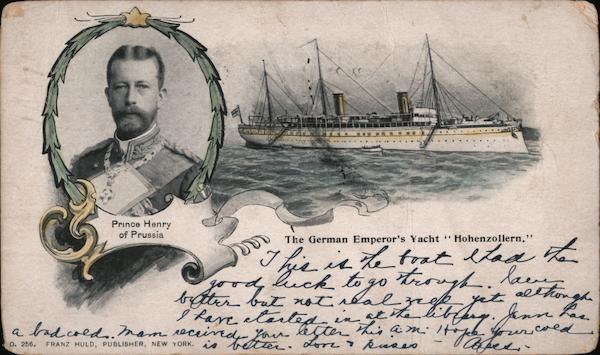 Prince Henry
of Prussia
The German Emperor's Yacht "Hohenzollern."
This is the boat I had the
good luck to go through. I am
better but not real well yet although
I have started in at the library. Ann has
a bad cold. Mam received your letter this A.M. Hope your cold
is better. Love & kisses -
D. 256. FRANZ HULD, PUBLISHER, NEW YORK.